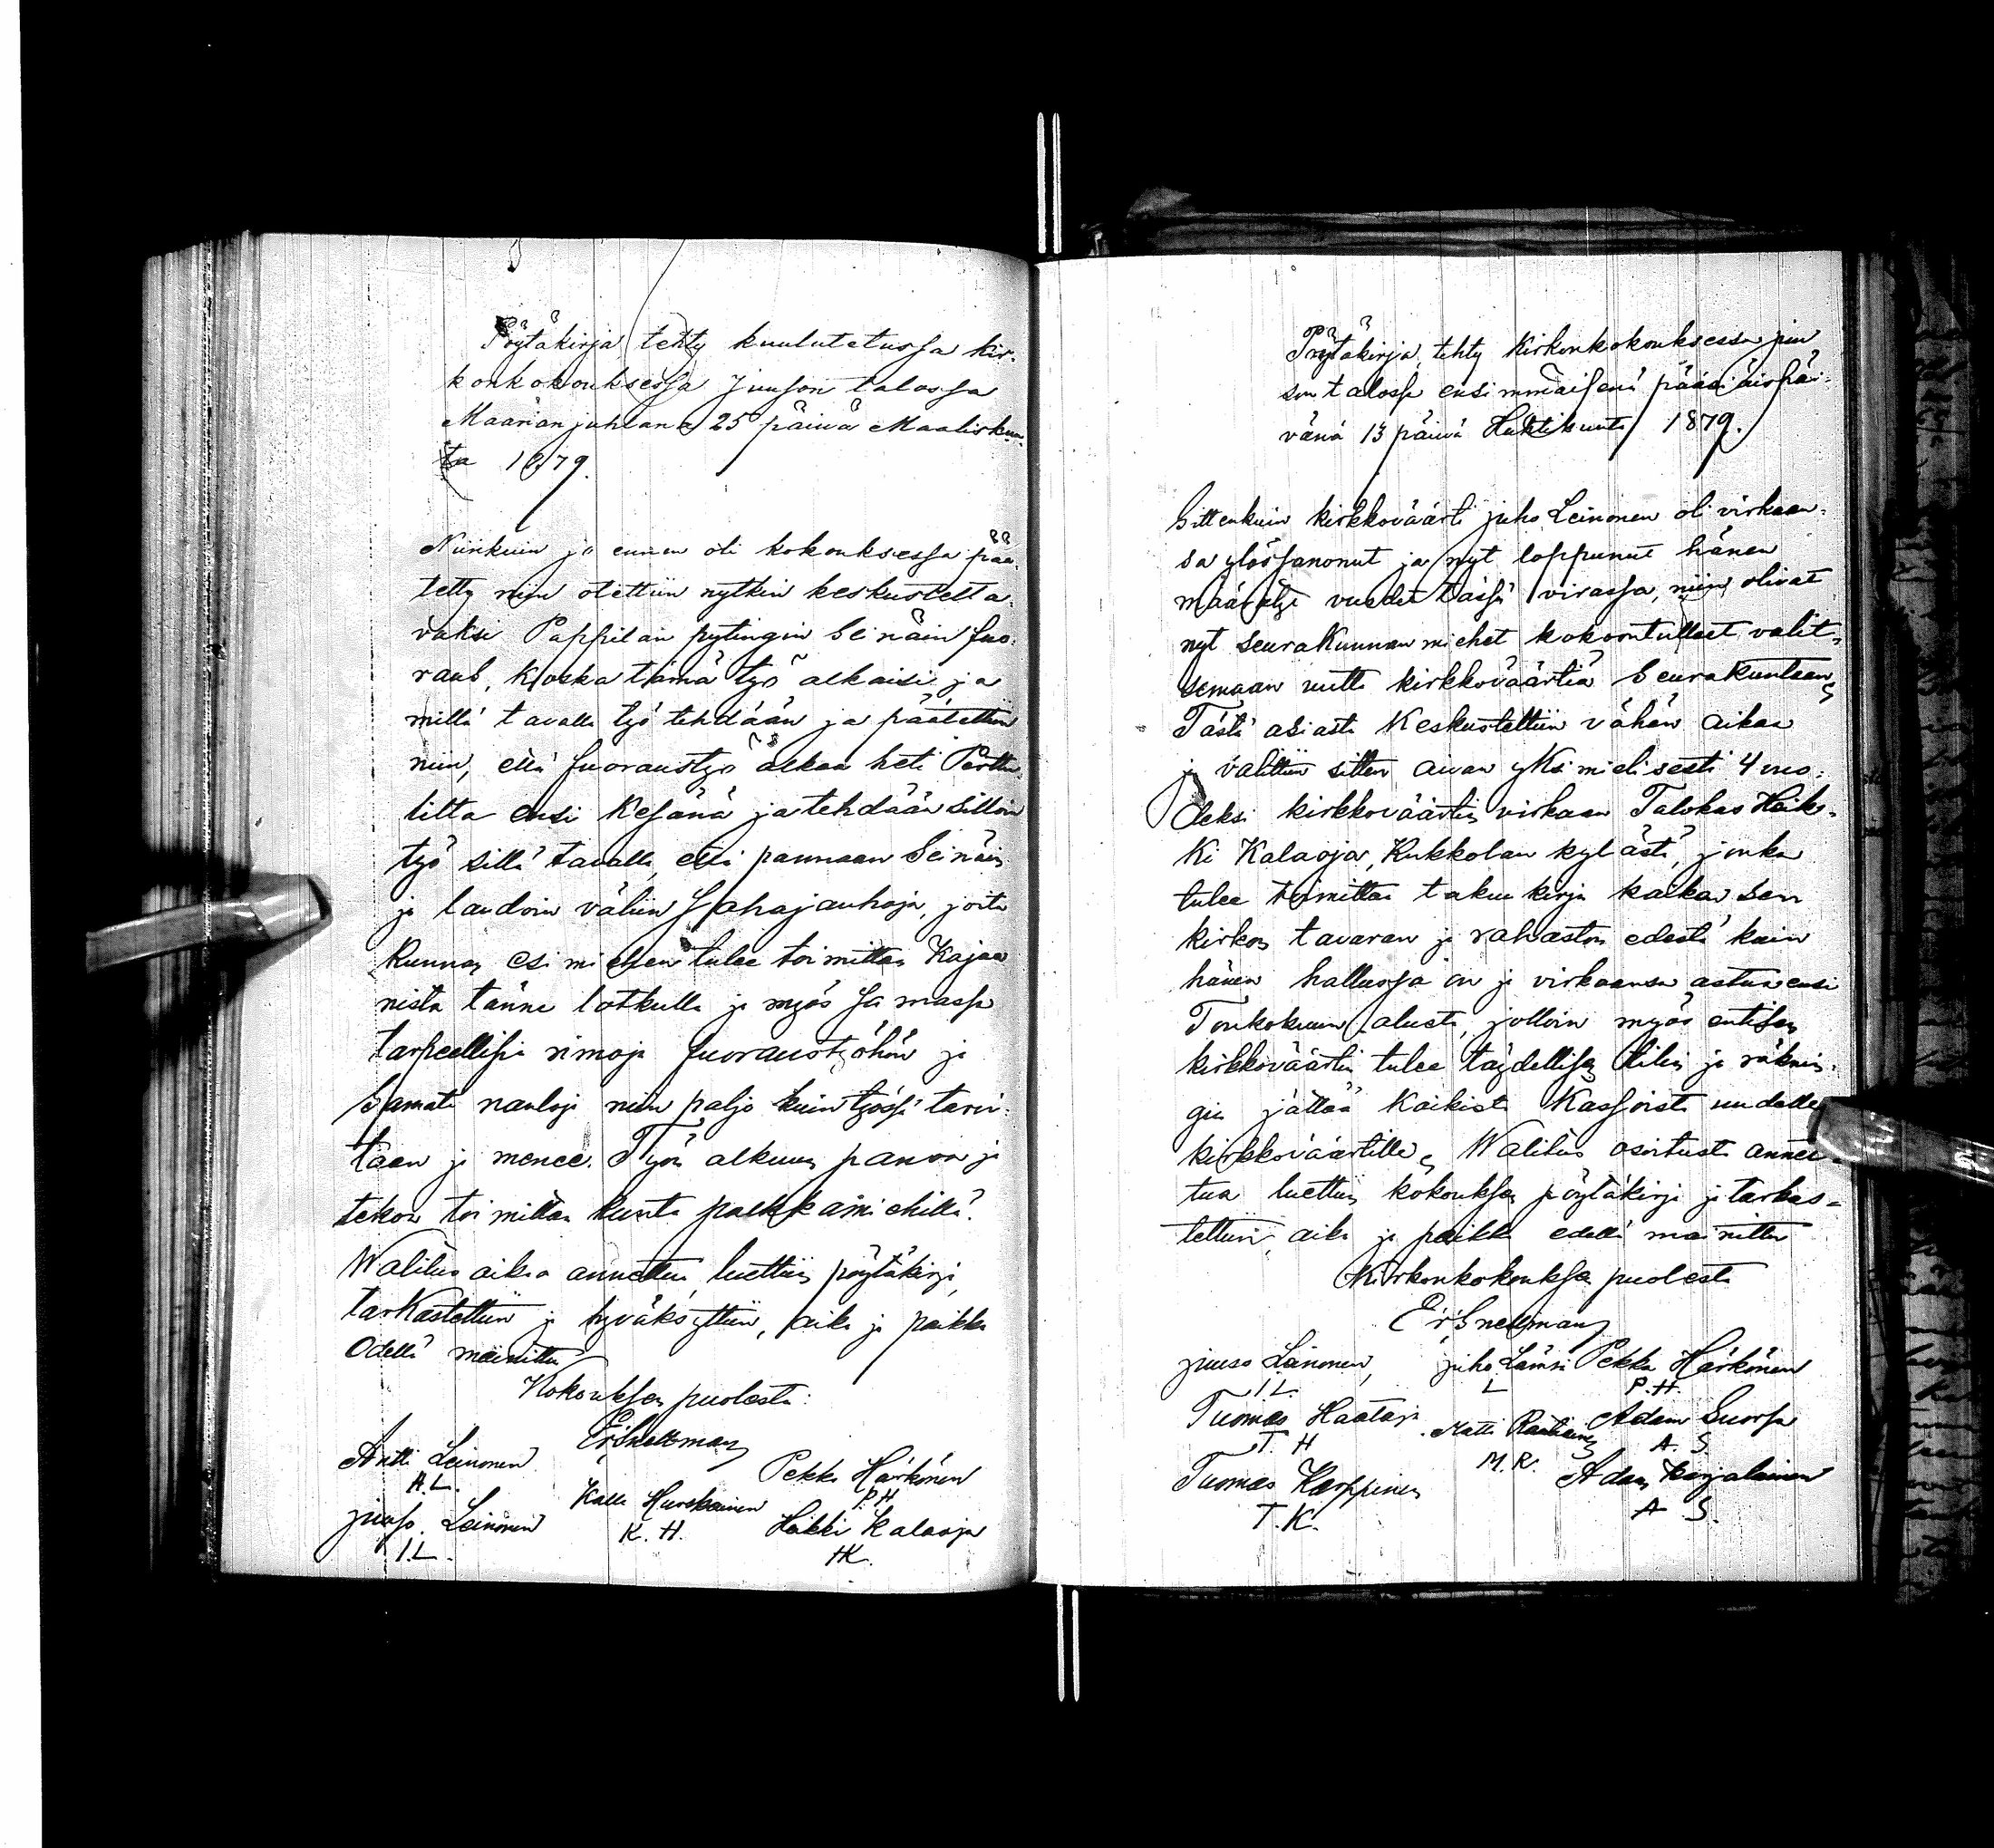 Pöytäkirja tehty kuulutetussa kir-
konkokouksessa Juuson talossa
Maarianjuhlana 25 päivä Maaliskuu-
ta 1879.
Niinkuin jo ennen oli kokouksessa pää-
tetty niin otettiin nytkin keskustelta-
vaksi Pappilan pytingin Seinäin suo-
raus, koska tämä työ alkaisi ja
millä tavalla työ tehdään ja päätettiin
niin, että suoraustyö alkaa heti Perttu-
litta ensi kesänä ja tehdään silloin
työ sillä tavalla, että pannaan Seinäin
ja laudoin väliin Sahajauhoja, joita
Kunnan esimiehen tulee toimittaa Kajaa
nista tänne lotkulla ja myös samassa
tarpeellisia rimoja suoraustyöhön ja
Samati nauloja niin paljo kuin työssä tarvi-
taan ja menee. Työn alkuun panon ja
tekon toimittaa kunta palkkamiehillä.
Walitus aikaa annettua, luettiin pöytäkirja,
tarkastettiin ja hyväksyttiin, aika ja paikka
Edellä mainittu
Kokouksen puolesta:
Er Snellman
Antti Leinonen
A.L.
Pekka Härkönen
P.H
Kalle Hurskainen
K. H.
juuso Leinonen
I.L.
Heikki Kalaoja
HK.
Pöytäkirja, tehty Kirkonkokouksessa juu
son talossa ensimmäisenä pääsiäispäi-
vänä 13 päivä Huhtikuuta 1879.
Sittenkuin kirkkoväärti juho Leinonen oli virkaan-
sa ylössanonut ja nyt loppunut hänen
määrätyt vuodet tässä virassa, niin olivat
nyt seurakunnan miehet kokoontulleet valit-
semaan uutta kirkkoväärtiä Seurakuntaan,
Tästä asiasta Keskusteltiin vähän aikaa
ja valittiin sitten aivan yksimielisesti 4 vuo-
deksi kirkkoväärtin virkaan Talokas Heik-
ki Kalaoja, Kukkolan kylästä, jonka
tulee toimittaa takuukirja kaikan sen
kirkon tavaran ja rahaston edestä kuin
hänen hallussa on ja virkaansa astuu ensi
Toukokuun alusta, jolloin myös entisen
kirkkoväärtin tulee täydellisen tilin ja räknin-
gin jättää kaikista Kassoista uudelle
kirkkoväärtille, Walitus osoitusta annet-
tua luettiin kokouksen pöytäkirja ja tarkas-
tettiin, aika ja paikka edellä mainittu
Kirkonkokouksen puolesta
Er Snellman
juuso Leinonen, juho Lämsä Pekka Härkönen
I L. L P.H.
Tuomas Haataja Matti Rautiainen Adam Suorsa
T. H M.R. A. S.
Tuomas Karppinen Adam Karjalainen
T. K. A S.